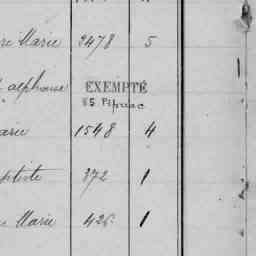 re Marie 3478 5
alphonse EXEMPTÉ
85 Pipriac
arie 1548 4
ptiste 372 1
Marie 426 1